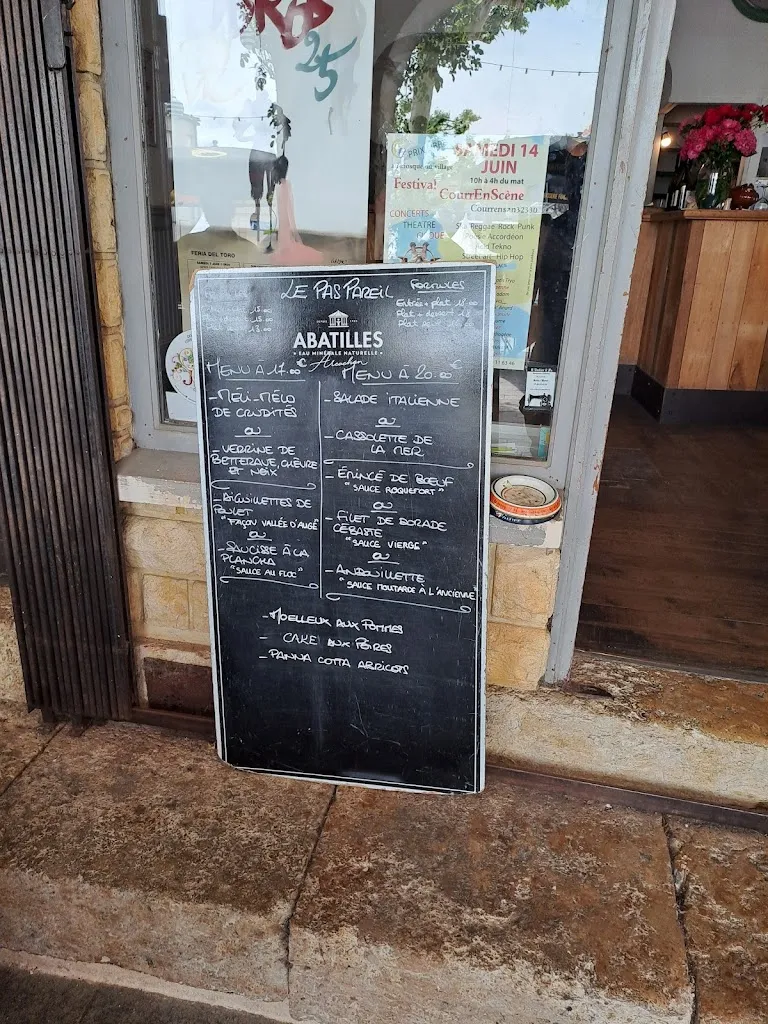 25
SAMEDI 14
JUIN
10h à 4h du mat
Festival
CourrEnScène
Courrensan 32330
CONCERTS
THEATRE
FERIA DEL TORO
LE PAS PAREIL
FORMULES
15.00
15.00
13.00
Entrée + plat
Plat + dessert
Plat
ABATILLES
EAU MINÉRALE NATURELLE
Arcachon
MENU À 17.00 €
- MÉLI-MÉLO
DE CRUDITÉS
OU
- VERRINE DE
BETTERAVE, CHÈVRE
ET NOIX
- AIGUILLETTES DE
POULET
"FAÇON VALLÉE D'AUGE"
OU
- SAUCISSE À LA
PLANCHA
"SAUCE AU FLOC"
MENU À 20.00 €
- SALADE ITALIENNE
OU
- CASSOLETTE DE
LA MER
- ÉMINCÉ DE BOEUF
"SAUCE ROQUEFORT"
OU
- FILET DE DORADE
CÉBASTE
"SAUCE VIERGE"
OU
- ANDOUILLETTE
"SAUCE MOUTARDE À L'ANCIENNE"
- MOELLEUX AUX POMMES
- CAKE AUX POIRES
- PANNA COTTA ABRICOTS